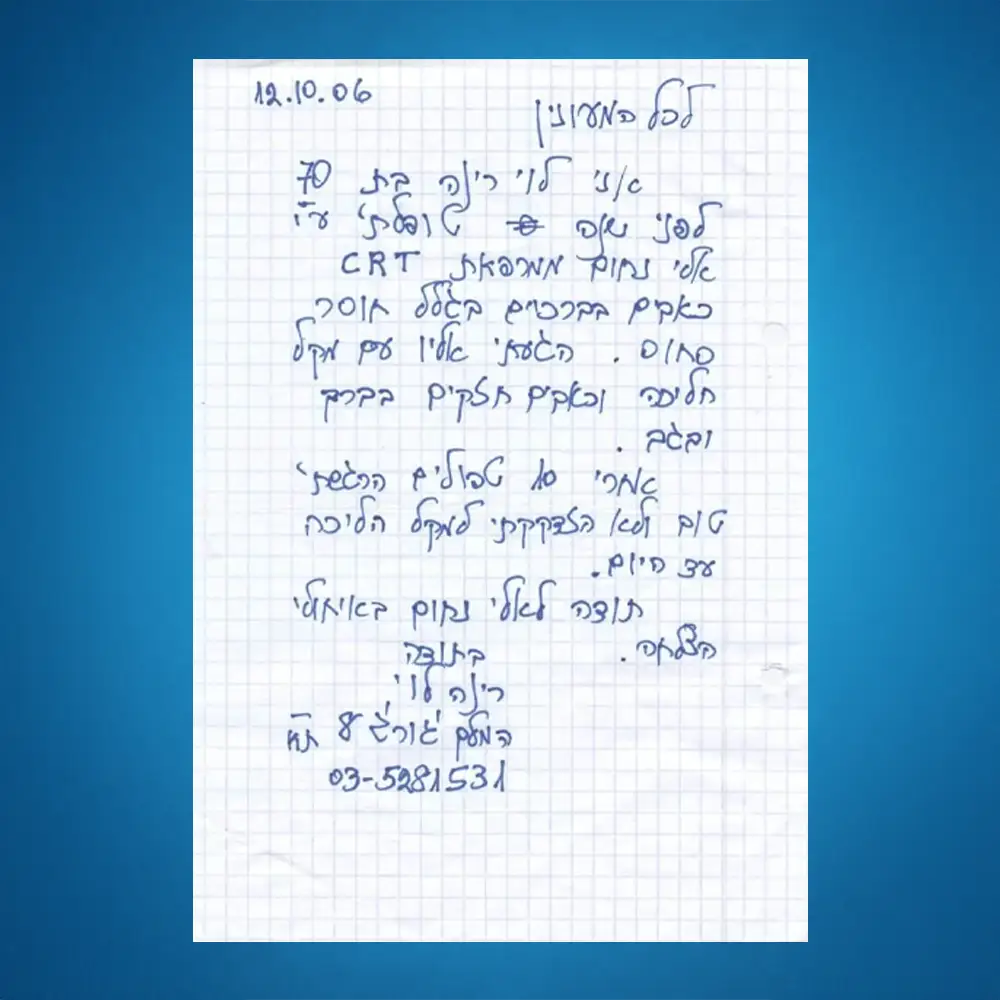 12.10.06
לכל המעונין
אני לוי רינה בת 70
לפני שנה טופלתי ע"י
אלי נחום ממרפאת CRT
כאבים בברכיים בגלל חוסר
סחוס. הגעתי אליו עם מקל
הליכה וכאבים חזקים בברך
ובגב.
אחרי 10 טפולים הרגשתי
טוב ולא הזדקקתי למקל הליכה
עד היום.
תודה לאלי נחום באיחולי
הצלחה.
בתודה
רינה לוי,
המלך ג'ורג' 8 ת"א
03-5281531